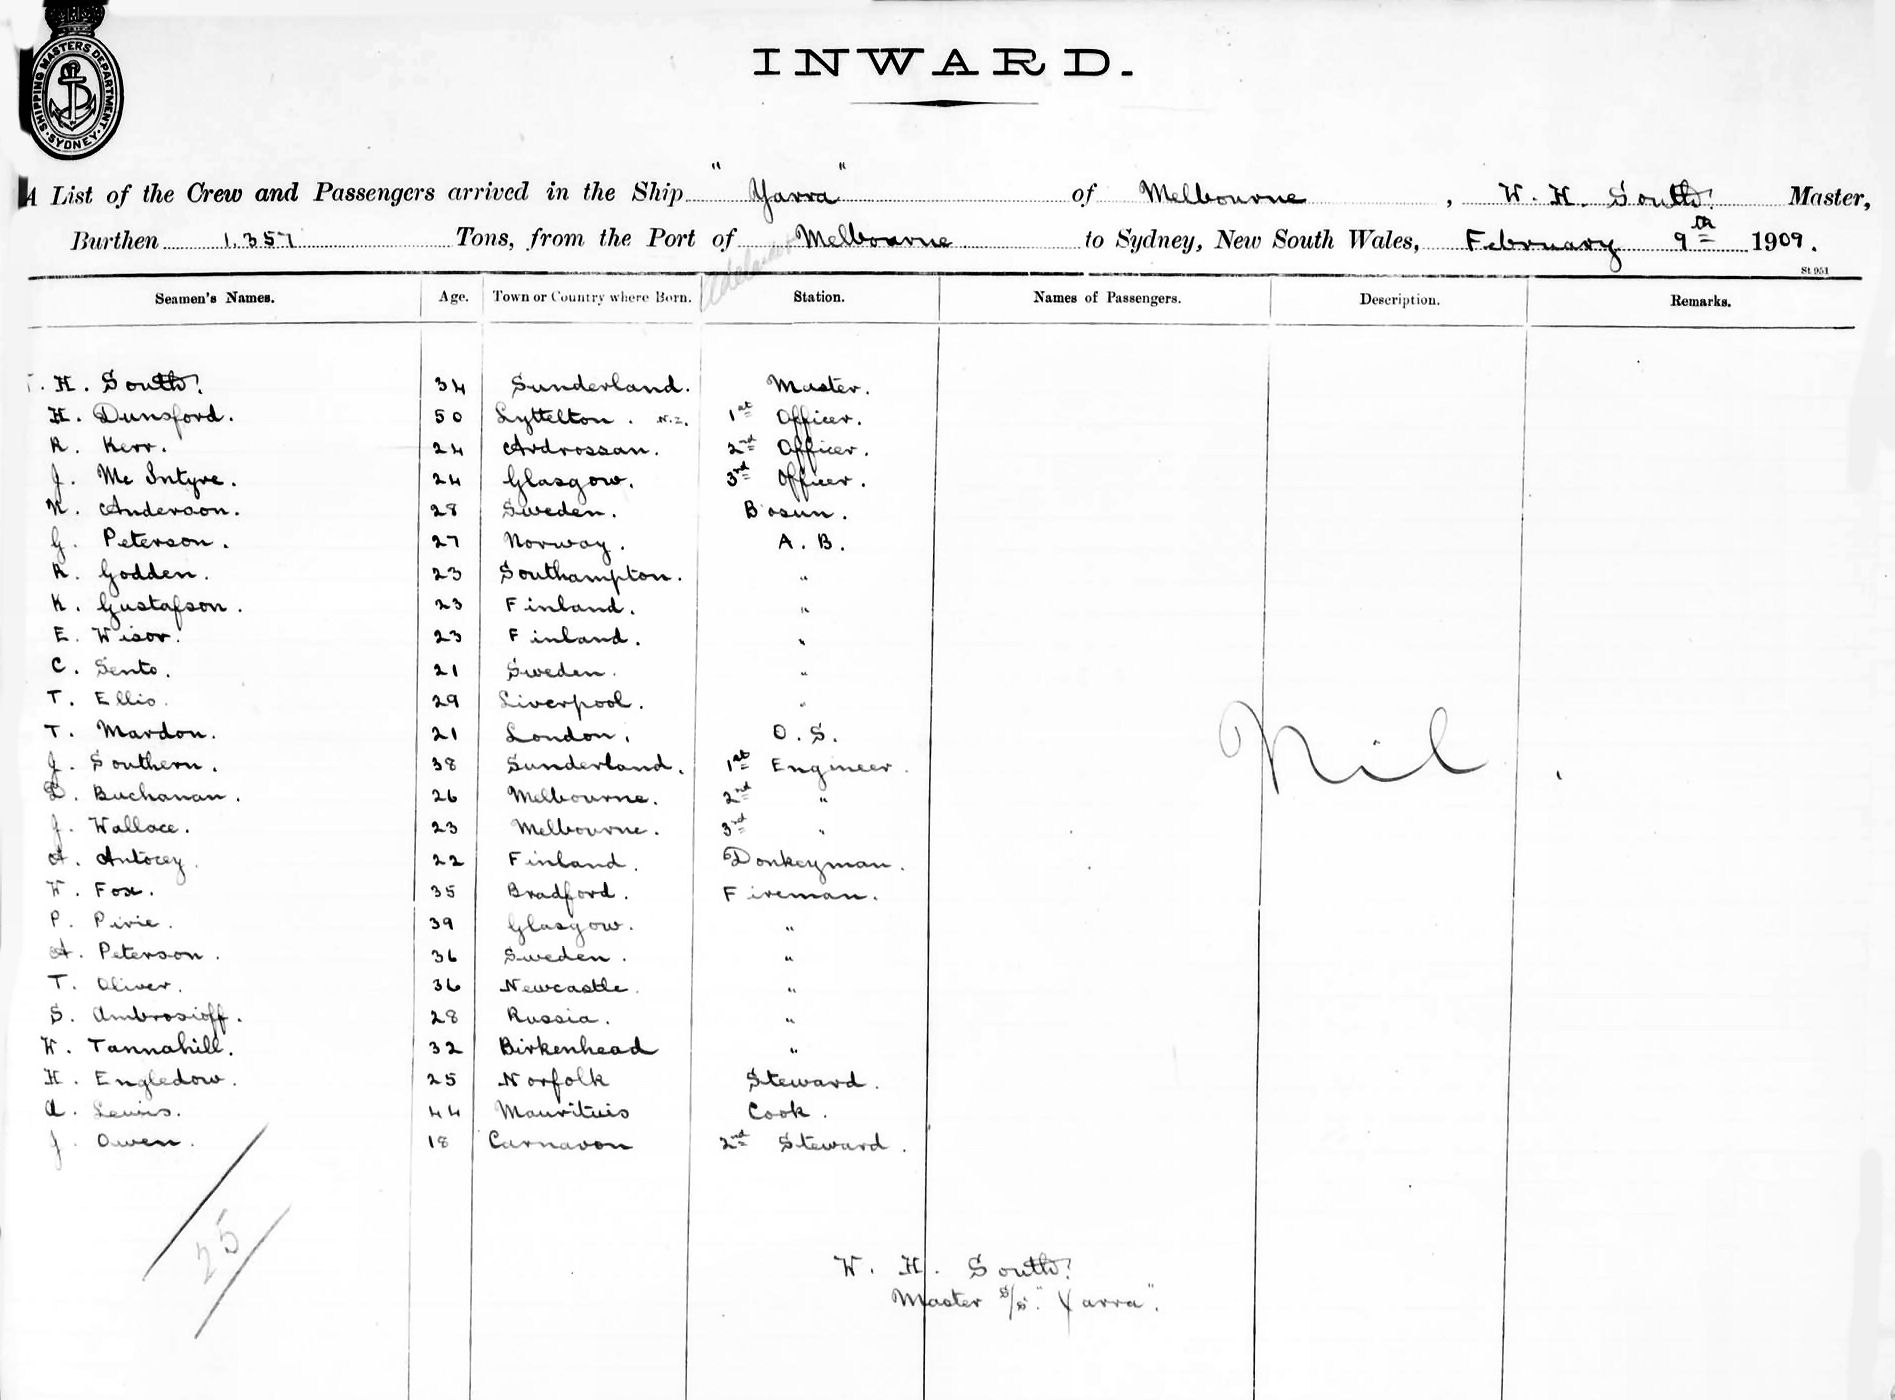 SHIPPING MASTERS DEPARTMENT. SYDNEY
INWARD.
A List of the Crew and Passengers arrived in the Ship "Yarra" of Melbourne, W. H. South Master,
Burthen 1,357 Tons, from the Port of Melbourne to Sydney, New South Wales, February 9th 1909.
Adelaide
St 951
Seamen's Names. Age. Town or Country where Born. Station. Names of Passengers. Description. Remarks.
H. South 34 Sunderland. Master.
H. Dunsford. 50 Lyttelton. N.Z. 1st Officer.
R. Kerr. 24 Ardrossan. 2nd Officer.
J. Mc Intyre. 24 Glasgow. 3rd Officer.
N. Anderson. 28 Sweden. Bosun.
G. Peterson. 27 Norway. A.B.
R. Godden. 23 Southampton. "
K. Gustafson. 23 Finland. "
E. Wisor. 23 Finland. "
C. Sento. 21 Sweden. "
T. Ellis. 29 Liverpool. "
T. Mardon. 21 London. O.S.
J. Southern. 38 Sunderland. 1st Engineer.
Nil.
D. Buchanan. 26 Melbourne. 2nd "
J. Wallace. 23 Melbourne. 3rd "
A. Antocey. 22 Finland. Donkeyman.
W. Fox. 35 Bradford. Fireman.
P. Pirie. 39 Glasgow. "
A. Peterson. 36 Sweden. "
T. Oliver. 36 Newcastle. "
S. Ambrosioff. 28 Russia. "
W. Tannahill. 32 Birkenhead "
H. Engledow. 25 Norfolk Steward.
A. Lewis. 44 Maurituis Cook.
J. Owen. 18 Carnavon 2nd Steward.
25
W. H. South
Master S/S. "Yarra".